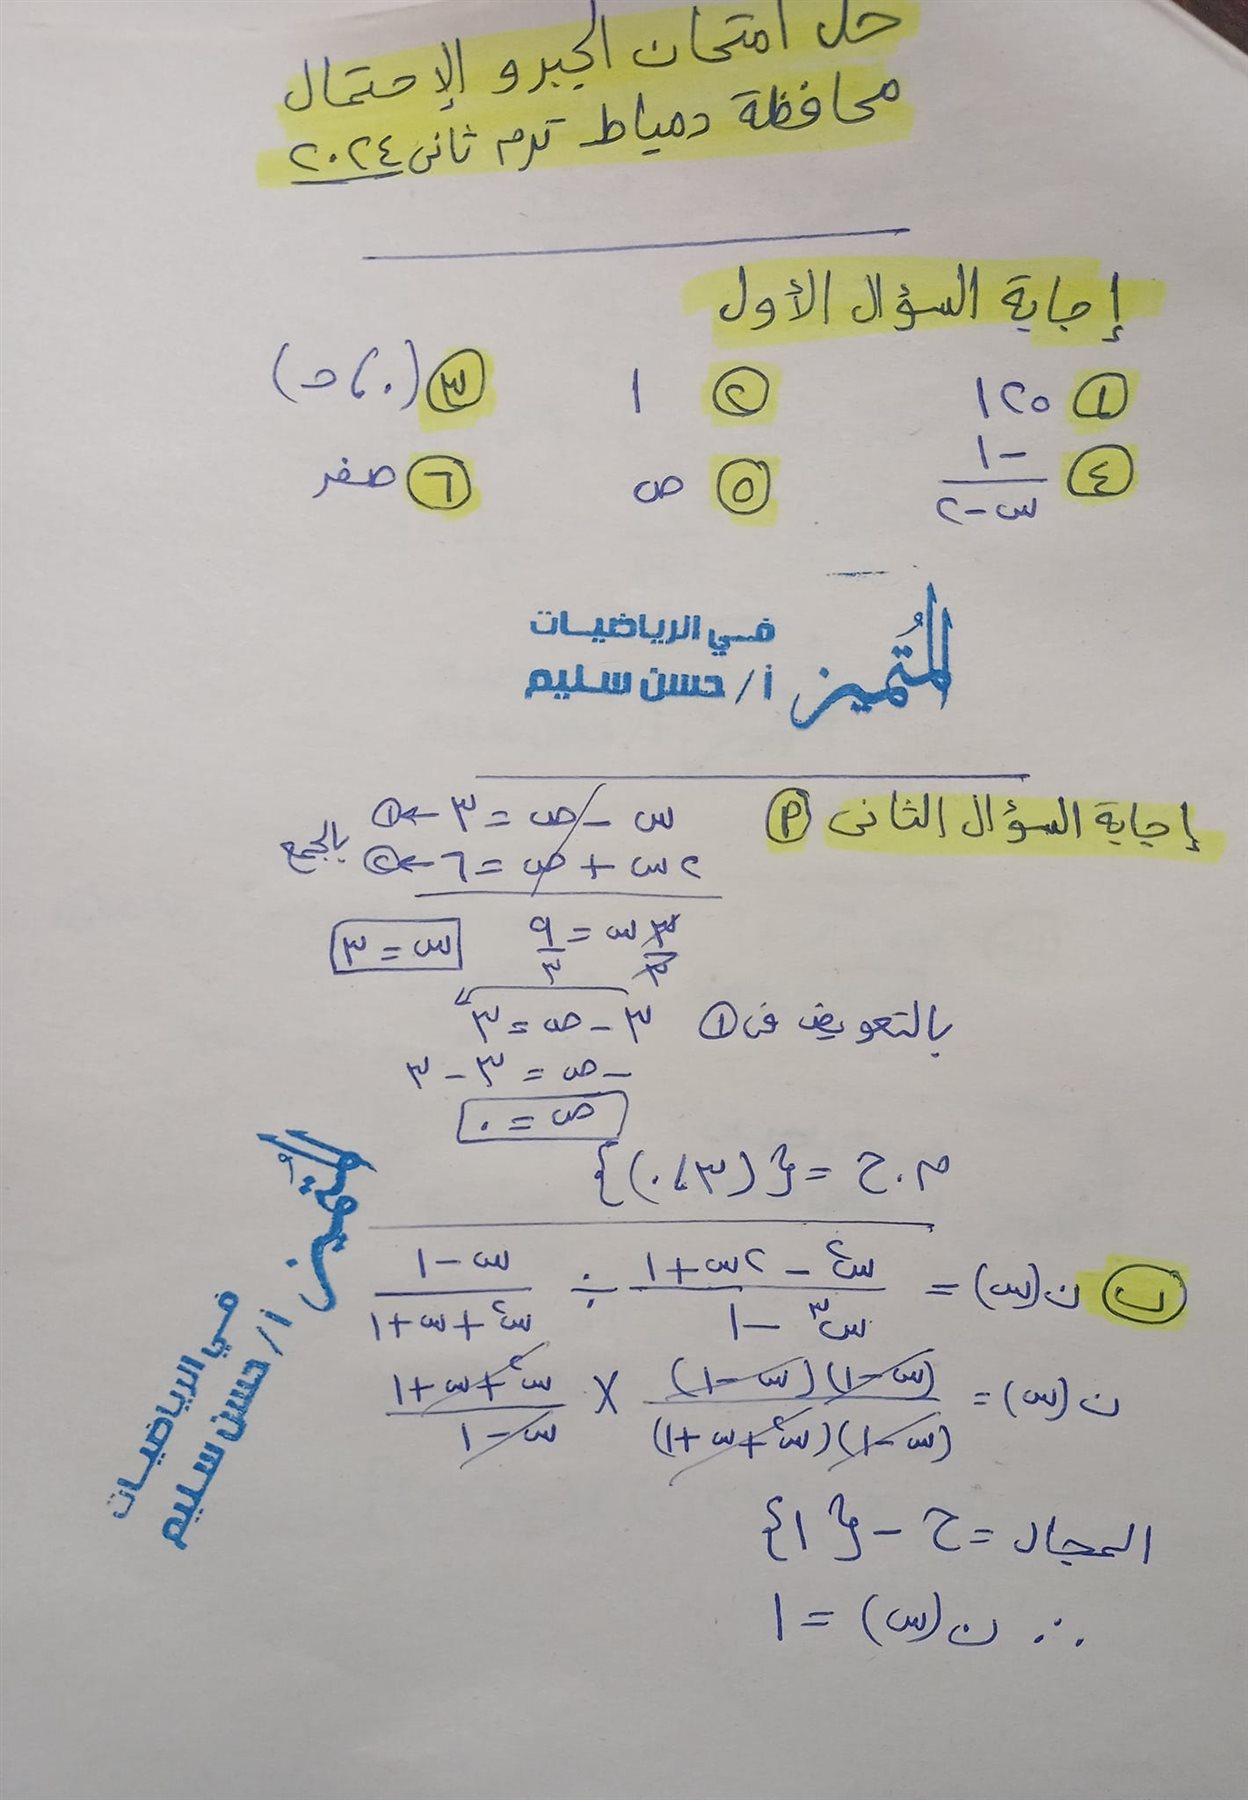 حل امتحان الجبر و الإحتمال
محافظة دمياط ترم ثانى ٢٠٢٤
إجابة السؤال الأول
① ١٢٥ ② ١ ③ (٠، ∞)
④ -١/(س-٢) ⑤ ص ⑥ صفر
المُتميز في الرياضيات
أ/ حسن سليم
إجابة السؤال الثانى Ⓟ س - ص = ٣ ← ①
٢س + ص = ٦ ← ② بالجمع
٣س/٣ = ٩/٣ س = ٣
بالتعويض فى ① ٣ - ص = ٣
-ص = ٣ - ٣
ص = ٠
م.ح = {(٣، ٠)}
ب ن(س) = (س² - ٢س + ١)/(س³ - ١) ÷ (س - ١)/(س² + س + ١)
ن(س) = (س-١)(س-١)/(س-١)(س²+س+١) × (س²+س+١)/(س-١)
المجال = ح - {١}
∴ ن(س) = ١
المُتميز في الرياضيات
أ/ حسن سليم